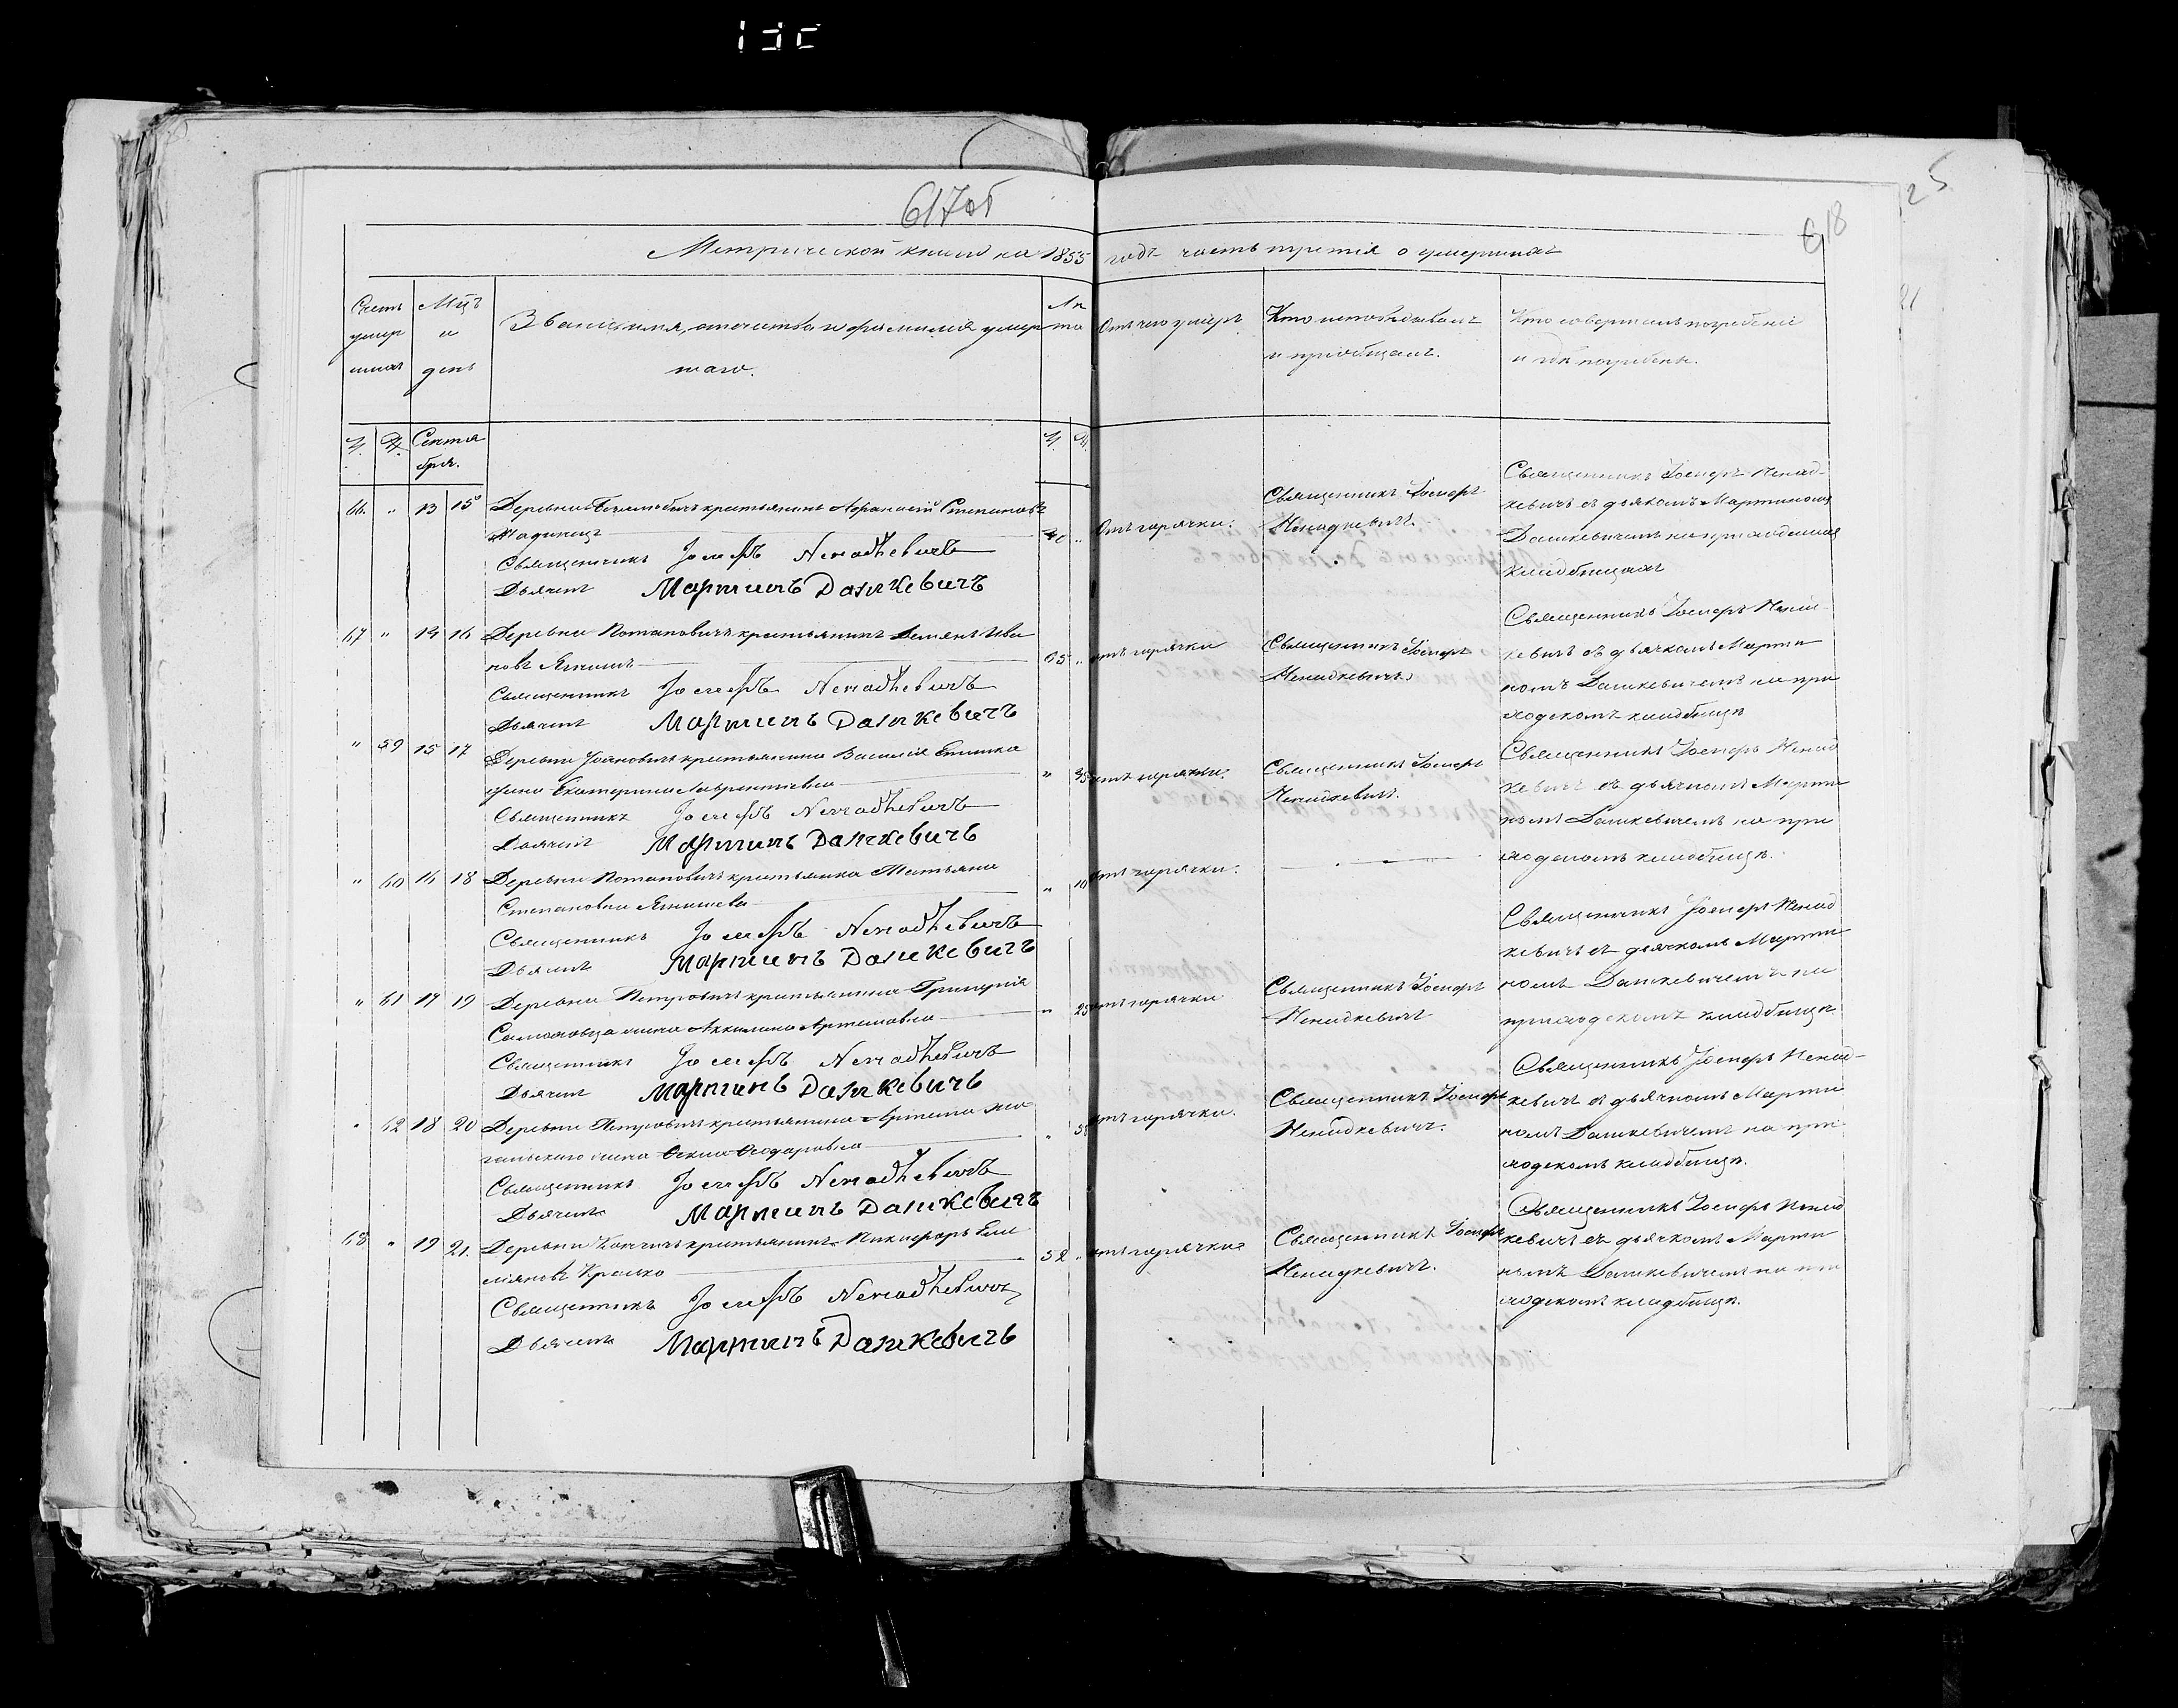 617об
618
25
Метрической книги на 1855 годъ часть третiя о умершихъ
Счетъ умер шихъ
Мцъ и день
Званiе, имя, отчество и фамилiя умер шаго.
Лѣ та
Отъ чего умеръ
Кто исповѣдывалъ и прiобщалъ.
Кто совершалъ погребенiе и гдѣ погребенъ.
М. Ж. Сентя бря. М. Ж.
66. " 13 15 Деревни крестьянинъ Афанасiй Степановъ
40 " Отъ горячки.
Священникъ Iосифъ Ненадкевичъ
Дьячекъ Мартинъ Дашкевичъ
Священникъ Iосифъ
Ненадкевичъ.
Священникъ Iосифъ Ненад-
кевичъ съ дьячкомъ Мартиномъ
Дашкевичемъ на приходскихъ
кладбищахъ
67 " 14 16 Деревни Потаповичъ крестьянинъ Демянъ Ива
новъ
65 " отъ горячки
Священникъ Iосифъ Ненадкевичъ
Дьячекъ Мартинъ Дашкевичъ
Священникъ Iосифъ
Ненадкевичъ.
Священникъ Iосифъ Ненад-
кевичъ съ дьячкомъ Марти
номъ Дашкевичемъ на при
ходскомъ кладбищѣ
" 59 15 17 Деревни крестьянина Василiя
жена Екатерина Лаврентiева
" 35 отъ горячки.
Священникъ Iосифъ Ненадкевичъ
Дьячекъ Мартинъ Дашкевичъ
Священникъ Iосифъ
Ненадкевичъ.
Священникъ Iосифъ Ненад
кевичъ съ дьячкомъ Марти
номъ Дашкевичемъ на при
ходскомъ кладбищѣ.
" 60 16 18 Деревни Потаповичъ крестьянка Татьяна
Степановна
" 10 отъ горячки.
Священникъ Iосифъ Ненадкевичъ
Дьячекъ Мартинъ Дашкевичъ
Священникъ Iосифъ Ненад
кевичъ съ дьячкомъ Марти
номъ Дашкевичемъ на
приходскомъ кладбищѣ
" 61 17 19 Деревни Петровичъ крестьянина Григорiя
жена Акилина Артемовна
" 25 отъ горячки
Священникъ Iосифъ Ненадкевичъ
Дьячекъ Мартинъ Дашкевичъ
Священникъ Iосифъ
Ненадкевичъ
" 62 18 20 Деревни Петровичъ крестьянина Артема
жена Феодоровна
" отъ горячки.
Священникъ Iосифъ Ненадкевичъ
Дьячекъ Мартинъ Дашкевичъ
Священникъ Iосифъ
Ненадкевичъ.
Священникъ Iосифъ Ненад-
кевичъ съ дьячкомъ Марти
номъ Дашкевичемъ на при
ходскомъ кладбищѣ.
68 " 19 21. Деревни крестьянинъ Никифоръ Еме
льяновъ
52 " отъ горячки
Священникъ Iосифъ Ненадкевичъ
Дьячекъ Мартинъ Дашкевичъ
Священникъ Iосифъ
Ненадкевичъ.
Священникъ Iосифъ Ненад
кевичъ съ дьячкомъ Марти
номъ Дашкевичемъ на при
ходскомъ кладбищѣ.